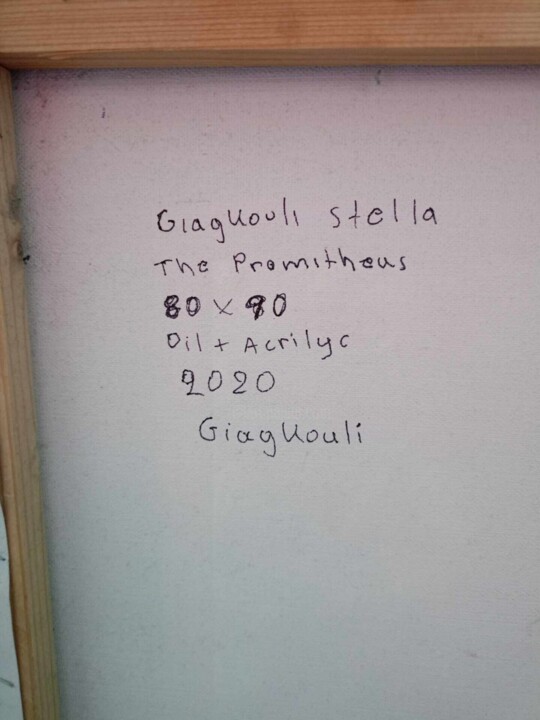 Giagkouli stella
The Promitheus
80 x 90
Oil + Acrilyc
2020
Giagkouli